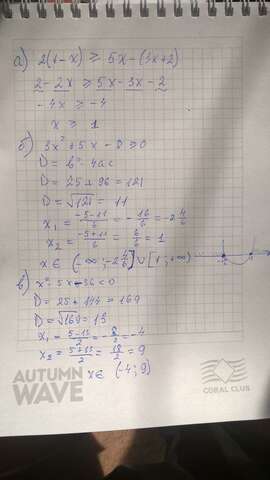 а) 2(1-x) ≥ 5x-(3x+2)
2-2x ≥ 5x-3x-2
-4x ≥ -4
x ≥ 1
б) 3x²+5x-8 ≥ 0
D = b²-4ac
D = 25+96 = 121
D = √121 = 11
x₁ = (-5-11)/6 = -16/6 = -2 4/6
x₂ = (-5+11)/6 = 6/6 = 1
x ∈ (-∞; -2 4/6] ∪ [1; +∞)
в) x²-5x-36 < 0
D = 25+144 = 169
D = √169 = 13
x₁ = (5-13)/2 = -8/2 = -4
x₂ = (5+13)/2 = 18/2 = 9
x ∈ (-4; 9)
AUTUMN
WAVE
CORAL CLUB